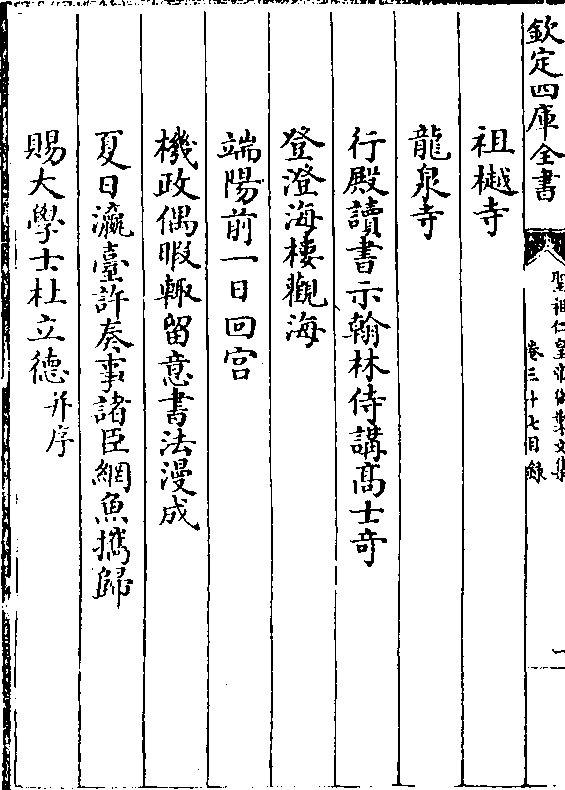 欽定四庫全書
聖祖仁皇帝御製文集
卷三十七目錄
一
祖樾寺
龍泉寺
行殿讀書示翰林侍講高士奇
登澄海樓觀海
端陽前一日回宫
機政偶暇輙留意書法漫成
夏日瀛臺許奏事諸臣網魚攜歸
賜大學士杜立德并序